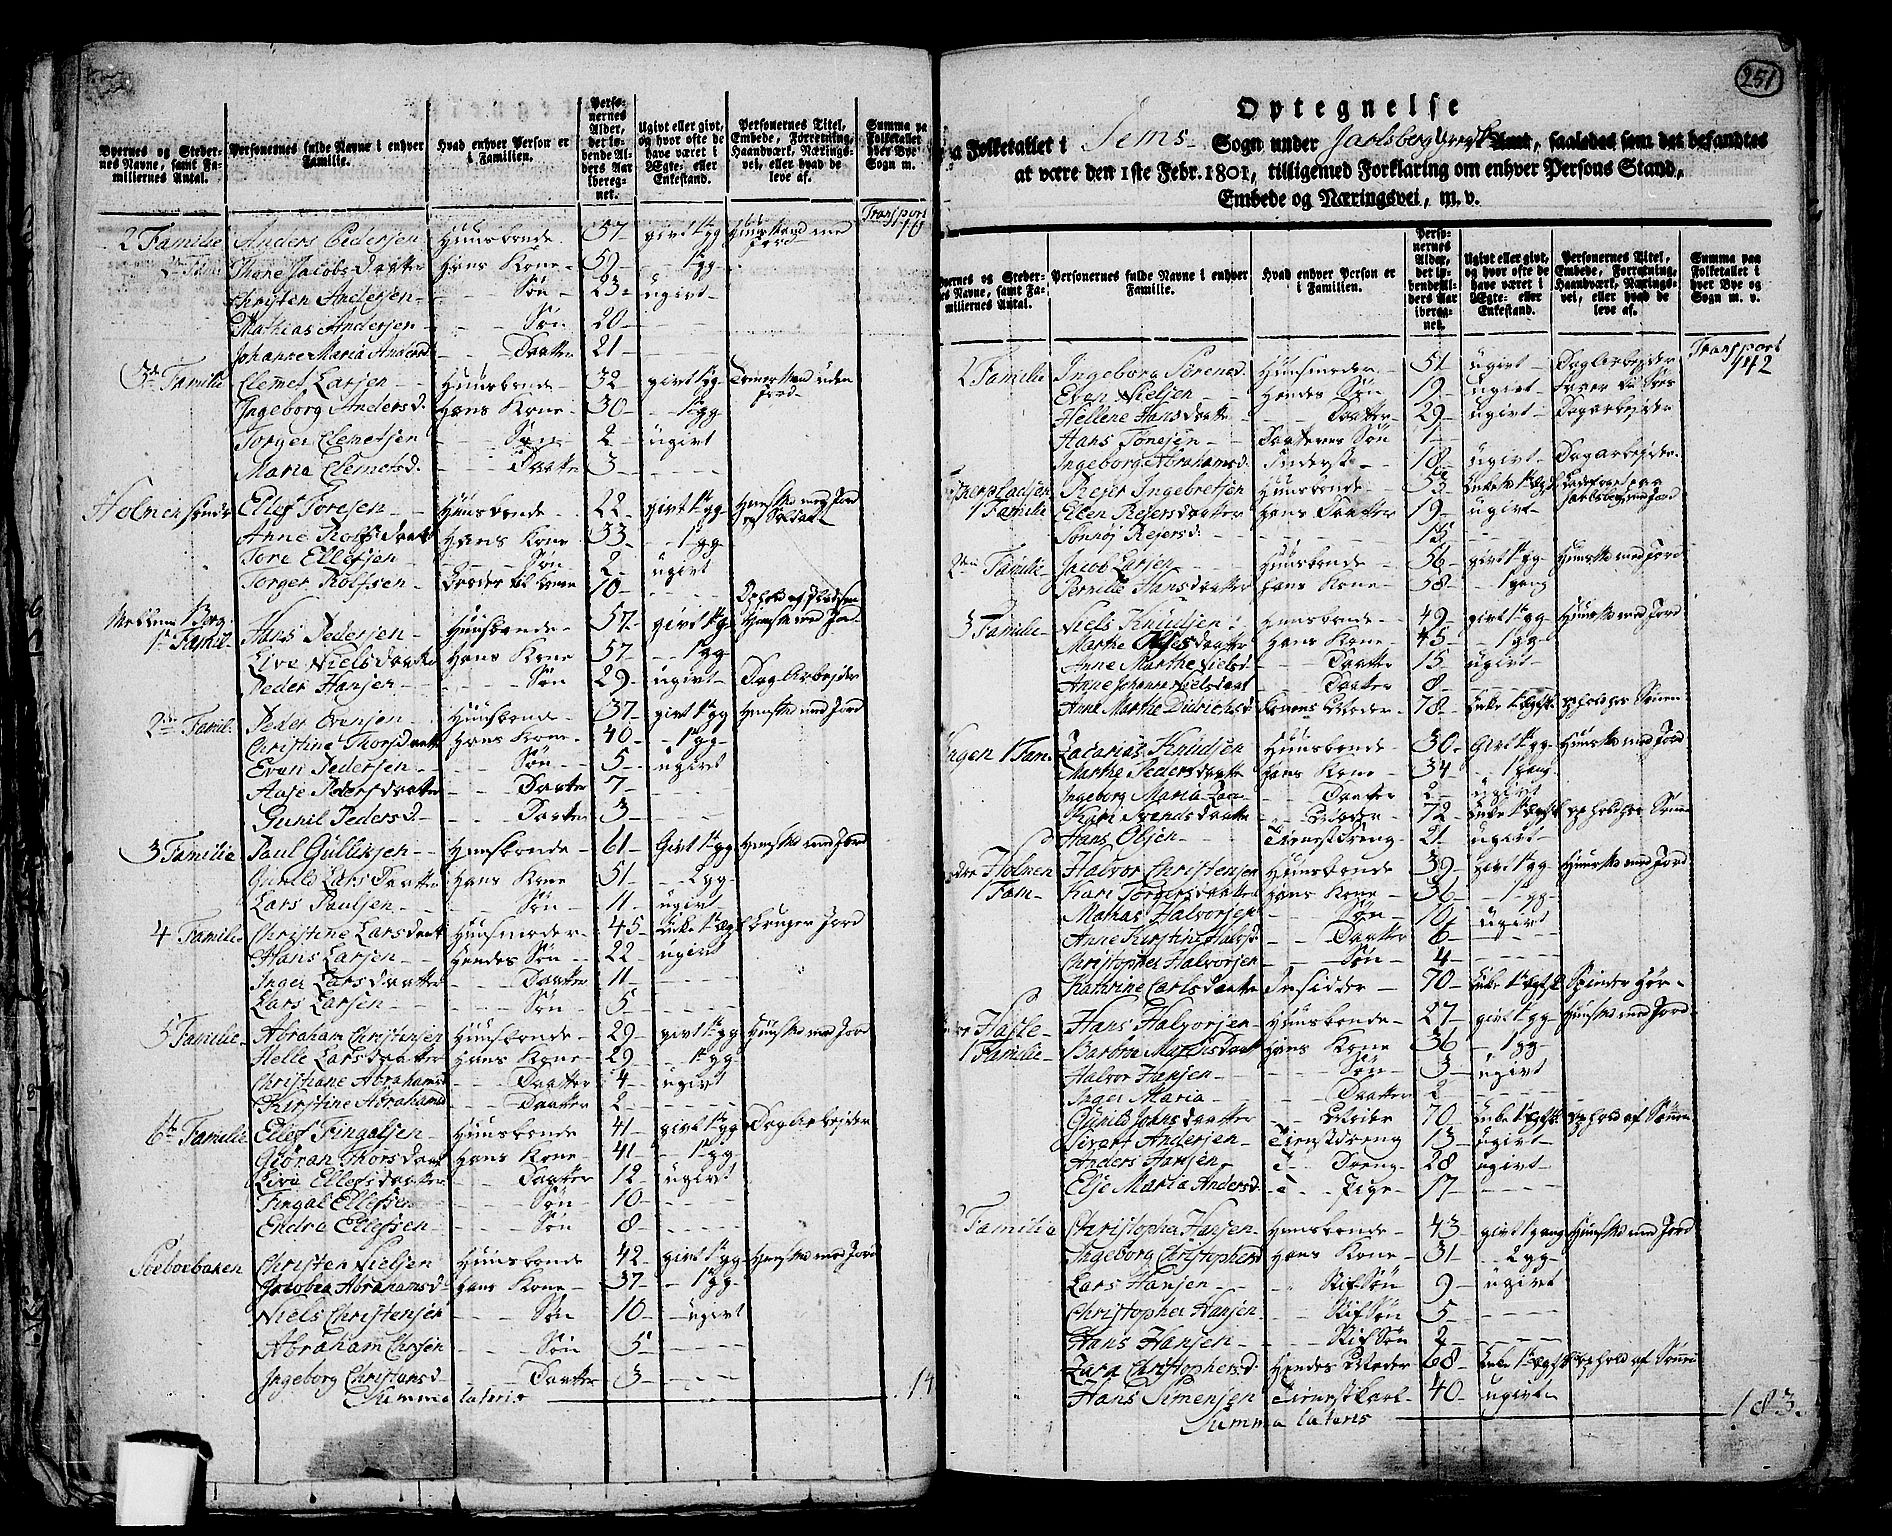 Byernes og Stedernes Navne, samt Familiernes Antal. | Personernes fulde Navne i enhver Familie. | Hvad enhver Person er i Familien. | Personernes Alder, det løbende Alders Aar iberegnet. | Ugivt eller givt, og hvor ofte de have været i Ægte- eller Enkestand. | Personernes Titel, Embede, Forretning, Haandværk, Næringsvei, eller hvad de leve af. | Summa paa Folketallet hver Bye og Sogn m. v.
Transport
2 Familie Anders Pedersen Huusbonde 57 givt 1 gg Huusmand med Jord
Thore Jacobs Daatter Hans Kone 59 1 gg
Christen Andersen Søn 23 ugivt
Mathias Andersen Søn 20
Johanne Maria Andersd Daatter 21
3de Familie Clemet Larsen Huusbonde 32 givt 1 gg uden Jord
Ingeborg Andersd. Hans Kone 30 1 gg
Torger Clemetsen Søn 2 ugivt
Maria Clemetsd. Daatter 3
Holmen Ellef Toresen Huusbonde 22 givt 1 gg Huusmd med Jord og Soldat
Anne Rolfsdaatt Hans Kone 33 1 gg
Tore Ellefsen Søn 2 ugivt
Torger Rolfsen Broder til Konen 10
Mellem Berg
1te Famil. Hans Pedersen Huusbonde 57 givt 1 gg Huusmd med Jord
Live Nielsdaatte Hans Kone 57 1 gg
Peder Hansen Søn 29 ugivt Dag Arbejder
2den Famil. Peder Evensen Huusbonde 37 givt 1 gg Huusmd med Jord
Christine Thorsdaatt Hans Kone 40 1 gg
Even Pedersen Søn 5 ugivt
Aase Pedersdaatter Daatter 7
Gunil Pedersd. Daatter 3
3 Familie Paul Gulliksen Huusbonde 61 Givt 1 gg Huusmd med Jord
Gunild Lars Daatter Hans Kone 51 2 gg
Lars Paulsen Søn 11 ugivt
4 Familie Christine Larsdaat Huusmoder 45 Enke 1 Ægt. bruger Jord
Hans Larsen Hendes Søn 22 ugivt
Inger Larsdaatter Daatter 11
Lars Larsen Søn 5
5 Familie Abraham Christensen Huusbonde 29 givt 1 gg Huusmd med Jord
Helle Larsdaatter Hans Kone 29 1 gg
Christiane Abrahamsd Daatter 4 ugivt
Kirstine Abrahamsd Daatter 2
6te Familie Ellef Fingalsen Huusbonde 41 givt 1 gg Dag Arbejder
Giøran Thorsdaat Hans Kone 41 1 gg
Live Ellefsdaatter Daatter 12 ugivt
Fingal Ellefsen Søn 10
Endre Ellefsen Søn 8
Christen Nielsen Huusbonde 42 givt 1 gg Huusmd med Jord
Jacobea Abrahamsd. Hans Kone 37 1 gg
Niels Christensen Søn 10 ugivt
Abraham Chrisen Søn 5
Ingeborg Christensd Daatter 3
Summa lateris 14
251
Optegnelse
paa Folketallet i Sems Sogn under Jarlsberg Grevsk Amt, saaledes som det befandtes
at være den 1ste Febr. 1801, tilligemed Forklaring om enhver Persons Stand,
Embede og Næringsvei, m. v.
Byernes og Stedernes Navne, samt Familiernes Antal. | Personernes fulde Navne i enhver Familie. | Hvad enhver Person er i Familien. | Personernes Alder, det løbende Alders Aar iberegnet. | Ugivt eller givt, og hvor ofte de have været i Ægte- eller Enkestand. | Personernes Titel, Embede, Forretning, Haandværk, Næringsvei, eller hvad de leve af. | Summa paa Folketallet i hver Bye og Sogn m. v.
Transport 942
2 Familie Ingeborg Sørensd. Huusmoder 51 ugivt Dag Arbejder
Even Nielsen Hendes Søn 19 ugivt
Hellene Hansdaatte Daatter 29 ugivt Dagarbejder
Hans Tonesen Daatterens Søn 1
Ingeborg Abrahamsd. Inderst 18 ugivt Dagarbejder
1 Familie Rejer Ingebretsen Huusbonde 53
Ellen Rejersdaatter Hans Daatter 19 ugivt
Sonnøj Rejersd. 15
2den Familie Jacob Larsen Huusbonde 56 givt 1 gg Huusmd med Jord
Pernille Hansdaatter Hans Kone 58 1 gang
3 Familie Niels Knudsen Huusbonde 49 givt 1 gg Huusmd med Jord
Marthe Olesdaatter Hans Kone 45 1 gg
Anne Marthe Nielsd Daatter 15 ugivt
Anne Johanne Nielsdaat Daatter 8
Anne Marthe Didrichsd Konens Moder 78 Enke 1 Ægt. ophold hos Sønen
1 Fam. Zacarias Knudsen Huusbonde 30 Givt 1 gg Huusmd med Jord
Marthe Pedersdaatte Hans Kone 34 1 gang
Ingeborg Maria Daatter 2 ugivt
Kari Svendsdaatte Moder 72 Enke 1 Ægt. ophold hos Sønen
Hans Olsen Tienestdreng 21 ugivt
Holmen Halvor Christensen Huusbonde 39 givt 1 gg Huusmd med Jord
1 Fam Kari Torgersdaatter Hans Kone 36 1 gg
Mathias Halvorsen Søn 10 ugivt
Anne Kirstine Halvsd Daatter 6
Christopher Halvorsen Søn 4
Kathrine Carlsdaatte Indsidder 70 Enke 1 Ægt. Spinder Hør
Hasle Hans Halvorsen Huusbonde 27 givt 1 gg Huusmd med Jord
1 Familie Barbroe Mathisdaat Hans Kone 36 1 gg
Halvor Hansen Søn 3 ugivt
Inger Maria Daatter 2
Gunild Johnsdaatter Moder 70 Enke 1 Ægt. ophold af Sønen
Sivert Andersen Tienestdreng 13 ugivt
Anders Hansen T. Dreng 28 ugivt
Else Maria Andersd T. Pige 17
2 Familie Christopher Hansen Huusbonde 43 givt 1 gang Huusmd med Jord
Ingeborg Christophersd Hans Kone 31 2 gg
Lars Hansen StifSøn 9 ugivt
Christopher Hansen StifSøn 5
Hans Hansen StifSøn 2
Zara Christophersd. Hendes Moder 68 Enke 1 Ægt. ophold af Sønen
Hans Simensen Tienestkarl 40 ugivt
Summa lateris 183.